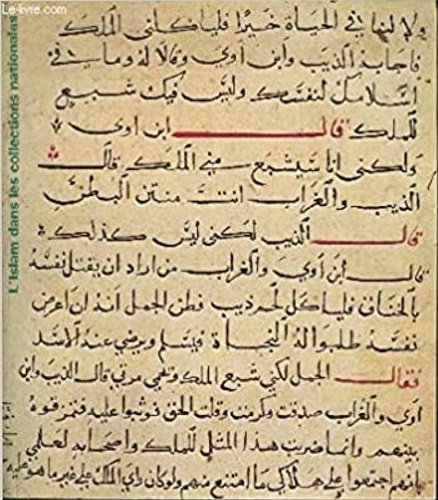 Le-livre.com
L'Islam dans les collections nationales
ولا لنا في الحياة خيرا فلياكلني الملك
فاجابه الذيب وابن اوي وقالا له وما في
اكلا مك لنفسك وليس فيك شبيع
للملك قال ابن اوى
ولكني انا سيشبع مني الملك قال
الذيب والغراب انت منتن البطن
قال الذيب لكني ليس كذلك
قال ابن آوي والغراب من اراد ان يقتل نفسه
بالخناق فلياكل لحم ذيب فظن الجمل انه ان اعرض
نفسه طلبوا له النجاة فيسلم ويرضي عنه الاسد
فقال الجمل لكني شبيع الملك ومرقي قال الذيب وابن
اوي والغراب صدقت وكرمت وقلت الحق فوثبوا عليه فمزقوه
بينهم وانما ضربت هذا المثل للملك واصحابه لعلمي
بانهم اجتمعوا على هلاكي ما امتنع منهم ولو كان راي الملك على غير ما هو عليه